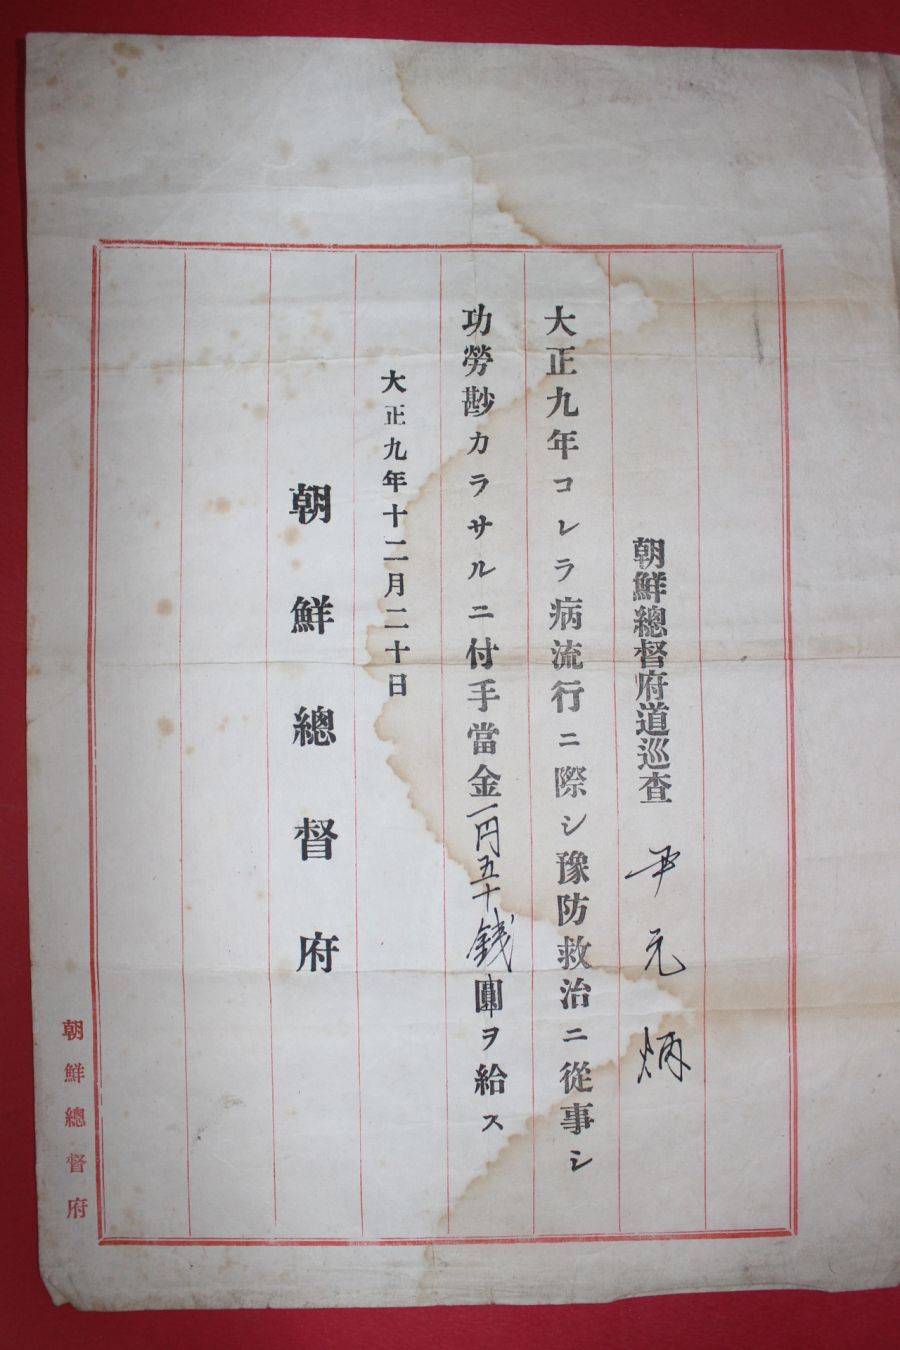 朝鮮總督府道巡査 尹元炳
大正九年コレラ病流行ニ際シ豫防救治ニ從事シ
功勞尠カラサルニ付手當金一円五十錢圓ヲ給ス
大正九年十二月二十日
朝鮮總督府
朝鮮總督府